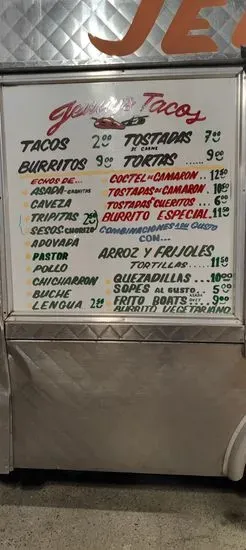 JE
Jesus's Tacos
TACOS 2.00
BURRITOS 9.00
ECHOS DE...
ASADA-CABEITAS
CAVEZA
TRIPITAS 2.50
SESOS CHORIZO
ADOVADA
PASTOR
POLLO
CHICHARRON
BUCHE
LENGUA 2.50
TOSTADAS DE CARNE 7.00
TORTAS ...... 9.00
COCTEL DE CAMARON.. 12.50
TOSTADAS DE CAMARON. 10.50
TOSTADAS CUERITOS .. 6.00
BURRITO ESPECIAL. 11.50
COMBINACIONES A SU GUSTO
CON...
ARROZ Y FRIJOLES
TORTILLAS .... 11.50
QUEZADILLAS .... 10.00
SOPES AL GUSTO. 5.00
FRITO BOATS ... 9.00
BURRITO VEGETARIANO